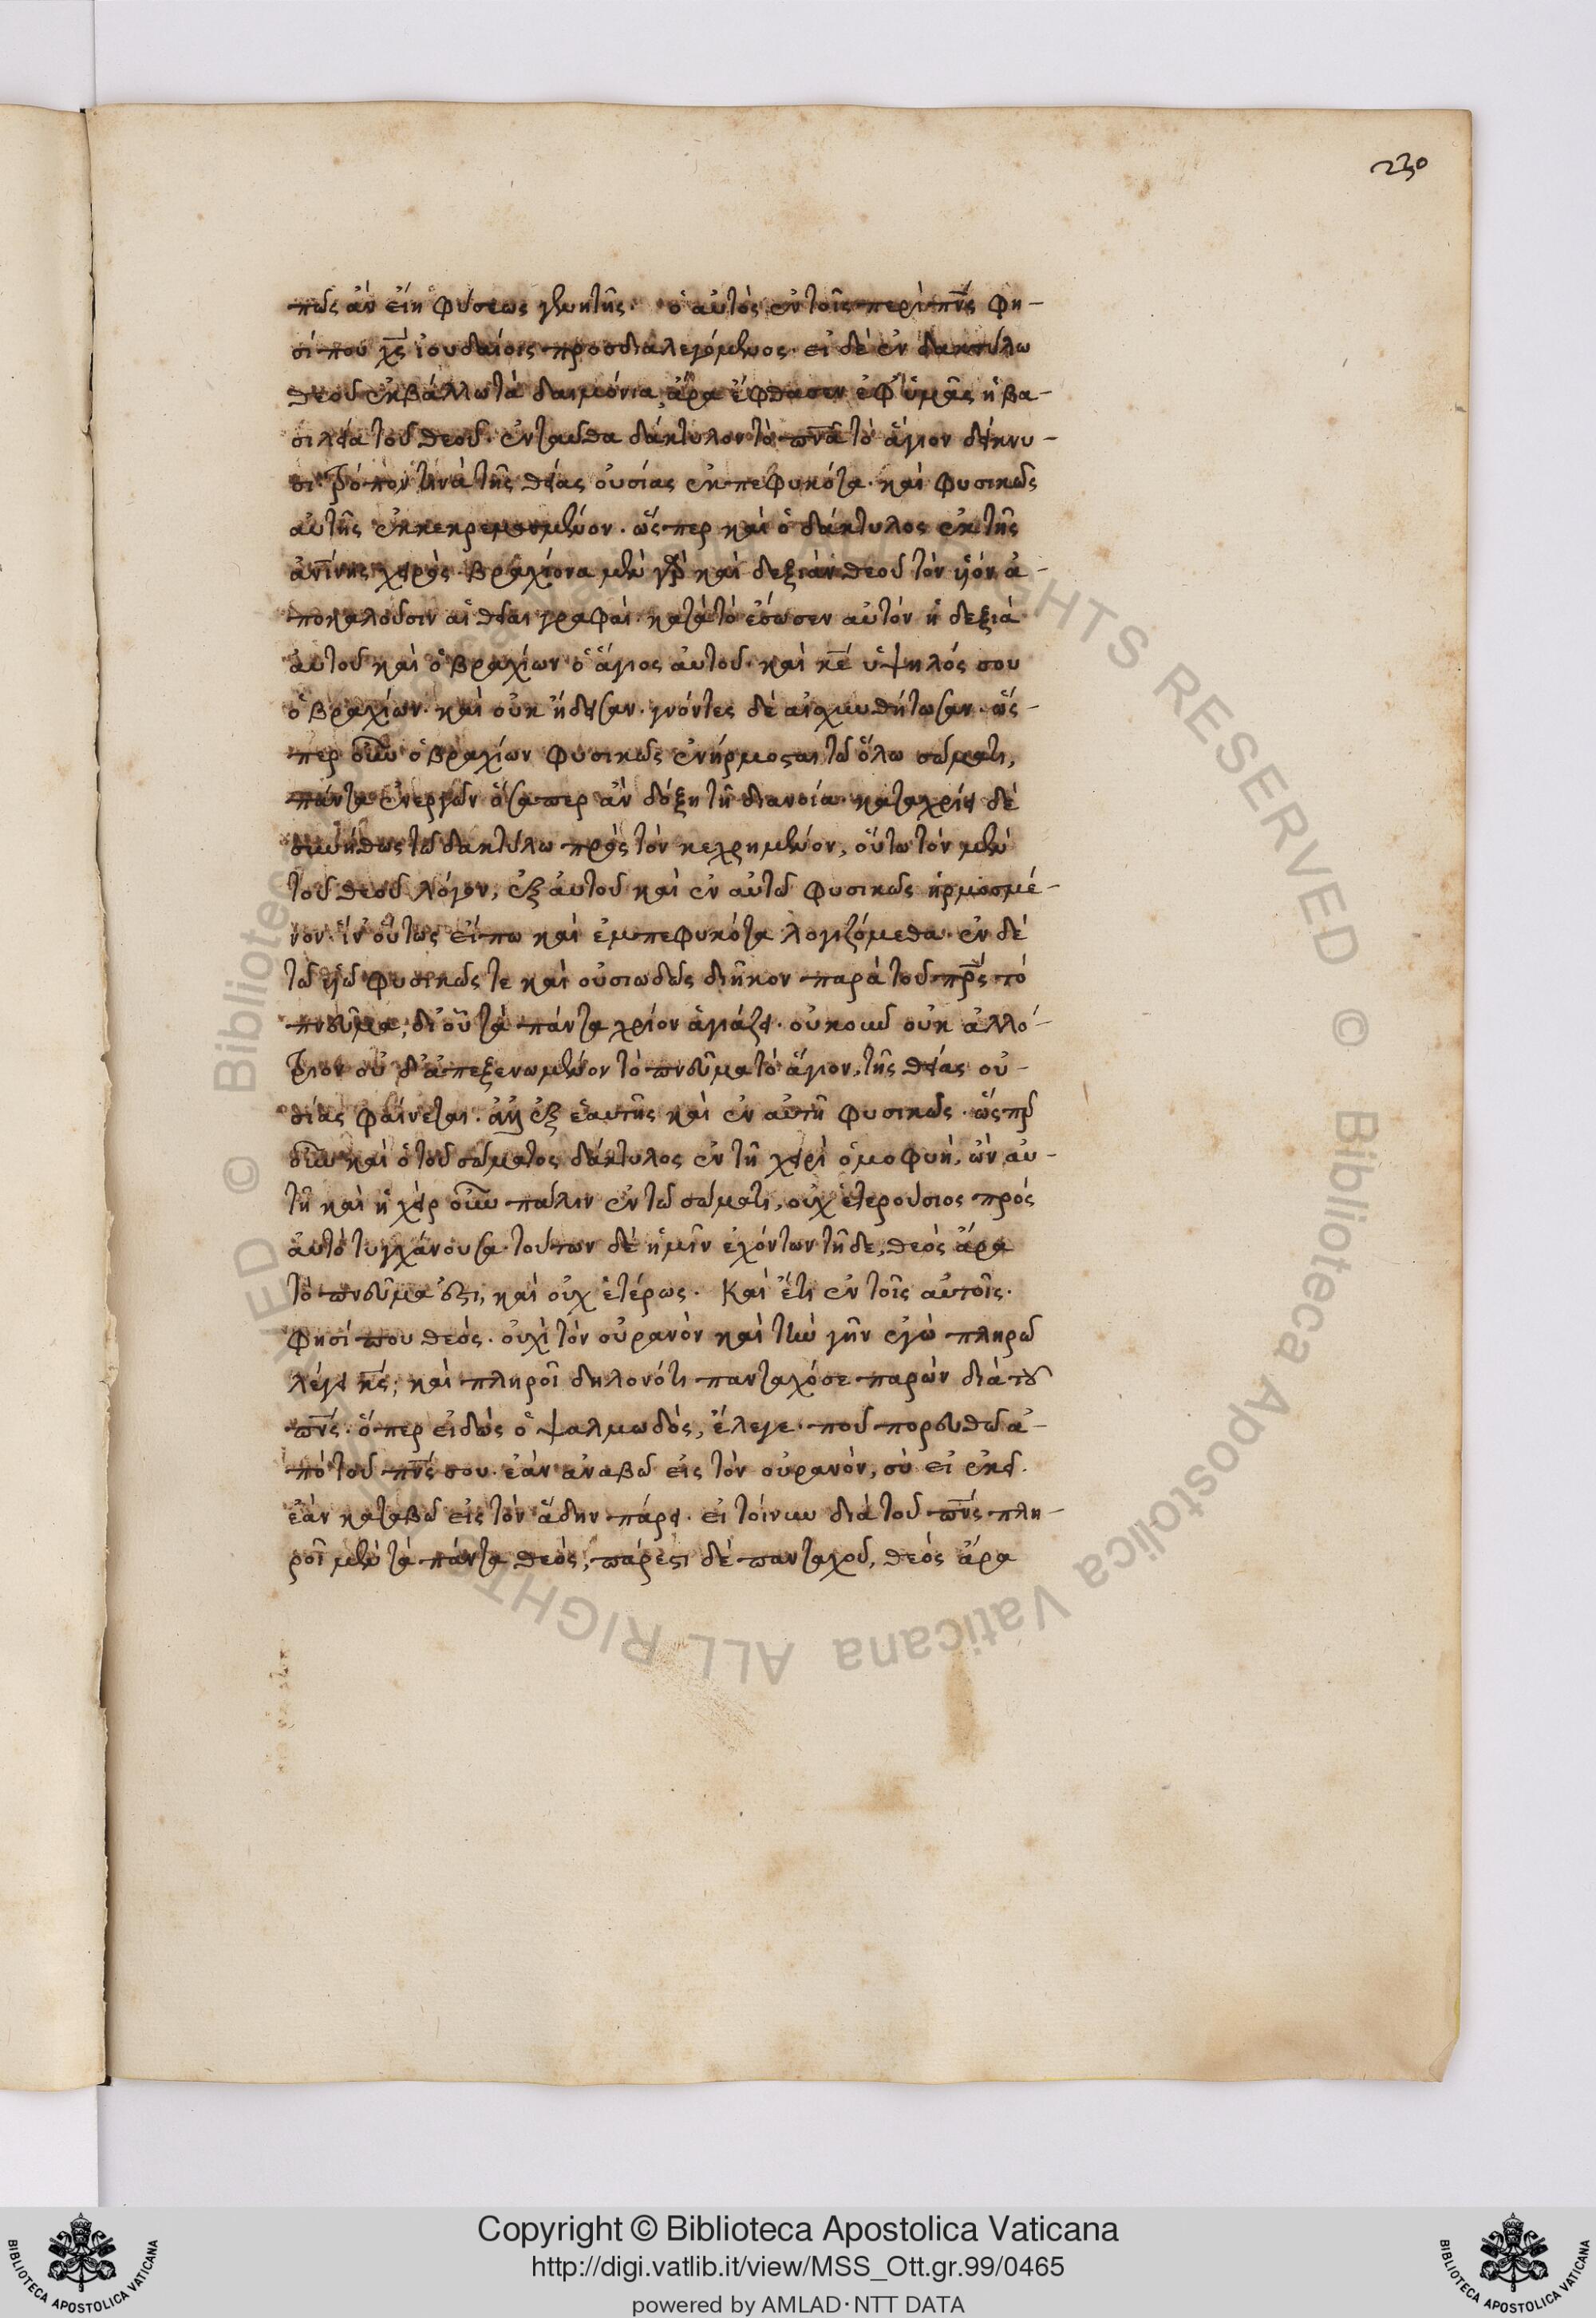 230
πῶς ἂν εἴη φύσεως γενητῆς. ὁ αὐτὸς ἐν τοῖς περὶ πν̅ς φη-
σί που χς̅ ἰουδαίοις προσδιαλεγόμενος. εἰ δὲ ἐν δακτύλω
θεοῦ ἐκβάλλω τὰ δαιμόνια, ἄρα ἔφθασεν ἐφ' ὑμᾶς ἡ βα-
σιλεία τοῦ θεοῦ. ἐνταῦθα δάκτυλον τὸ πν̅α τὸ ἅγιον δείκνυ-
σι τρόπον τινὰ τῆς θείας οὐσίας ἐκπεφυκότα. καὶ φυσικῶς
αὐτῆς ἐκκεκρεμασμένον. ὥσπερ καὶ ὁ δάκτυλος ἐκ τῆς
αν̅ίνης χειρός. βραχίονα μὲν γὰρ καὶ δεξιὰν θεοῦ τὸν υἱὸν ἀ-
ποκαλοῦσιν αἱ θεῖαι γραφαί. κατὰ τὸ ἔσωσεν αὐτὸν ἡ δεξιὰ
αὐτοῦ καὶ ὁ βραχίων ὁ ἅγιος αὐτοῦ. καὶ κε̅ ὑψηλός σου
ὁ βραχίων. καὶ οὐκ ἤδεισαν. γνόντες δὲ αἰσχυνθήτωσαν. ὥσ-
περ οὖν ὁ βραχίων φυσικῶς ἐνήρμοσται τῶ ὅλω σώματι,
πάντα ἐνεργῶν ὅσαπερ ἂν δόξη τῆ διανοία. καταχρίει δὲ
συνήθως τῶ δακτύλω πρὸς τὸν κεχρημένον, οὕτω τὸν μὲν
τοῦ θεοῦ λόγον, ἐξ αὐτοῦ καὶ ἐν αὐτῶ φυσικῶς ἡρμοσμέ-
νον. ἵν' οὕτως εἴπω καὶ ἐμπεφυκότα λογιζόμεθα. ἐν δὲ
τῶ υἱῶ φυσικῶς τε καὶ οὐσιωδῶς διῆκον παρὰ τοῦ πρ̅ς τὸ
πνεῦμα, δι' οὗ τὰ πάντα χρίον ἁγιάζει. οὐκοῦν οὐκ ἀλλό-
τριον οὐδ' ἀπεξενωμένον τὸ πνεῦμα τὸ ἅγιον, τῆς θείας οὐ-
σίας φαίνεται. ἀλλ' ἐξ ἑαυτῆς καὶ ἐν αὐτῆ φυσικῶς. ὥσπερ
οὖν καὶ ὁ τοῦ σώματος δάκτυλος ἐν τῆ χειρὶ ὁμοφυὴ, ὢν αὐ-
τῆ καὶ ἡ χεὶρ οὖν πάλιν ἐν τῶ σώματι, οὐχ ἑτερούσιος πρὸς
αὐτὸ τυγχάνουσα. τούτων δὲ ἡμῖν ἐχόντων τῆδε, θεὸς ἄρα
τὸ πνεῦμά ἐστι, καὶ οὐχ ἑτέρως. Καὶ ἔτι ἐν τοῖς αὐτοῖς.
φησί που θεός. οὐχὶ τὸν οὐρανὸν καὶ τὴν γῆν ἐγὼ πληρῶ
λέγει κς̅; καὶ πληροῖ δηλονότι πανταχόσε παρὼν διὰ τοῦ
πν̅ς. ὅπερ εἰδὼς ὁ ψαλμωδὸς, ἔλεγε. ποῦ πορευθῶ ἀ-
πὸ τοῦ πν̅ς σου. ἐὰν ἀναβῶ εἰς τὸν οὐρανὸν, σὺ εἶ ἐκεῖ.
ἐὰν καταβῶ εἰς τὸν ἄδην πάρει. εἰ τοίνυν διὰ τοῦ πν̅ς πλη-
ροῖ μὲν τὰ πάντα θεός, πάρεστι δὲ πανταχοῦ, θεὸς ἄρα
© Biblioteca Apostolica Vaticana ALL RIGHTS RESERVED
Copyright © Biblioteca Apostolica Vaticana
http://digi.vatlib.it/view/MSS_Ott.gr.99/0465
powered by AMLAD·NTT DATA
BIBLIOTECA APOSTOLICA VATICANA
BIBLIOTECA APOSTOLICA VATICANA